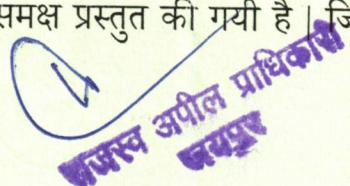 समक्ष प्रस्तुत की गयी है । जि
राजस्व अपील प्राधिकारी
जयपुर